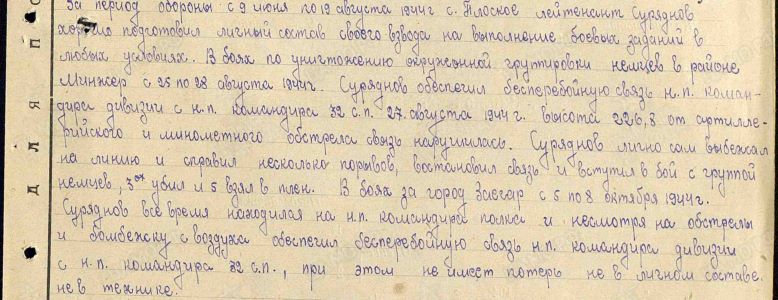 За период обороны с 9 июня по 19 августа 1944 г с. Плоское лейтенант Суряднов
хорошо подготовил личный состав своего взвода на выполнение боевых заданий в
любых условиях. В боях по уничтожению окруженной группировки немцев в районе
Минжер с 25 по 28 августа 1944г. Суряднов обеспечил бесперебойную связь н.п. коман-
дира дивизии с н.п. командира 32 с.п. 27 августа 1944 г. высота 226,8 от артилле-
рийского и минометного обстрела связь нарушилась. Суряднов лично сам выбежал
на линию и справил несколько порывов, востановил связь и вступил в бой с группой
немцев, 3ох убил и 5 взял в плен. В боях за город Заечар с 5 по 8 октября 1944 г.
Суряднов все время находился на н.п. командира полка и несмотря на обстрелы
и бомбежку с воздуха обеспечил бесперебойную связь н.п. командира дивизии
с н.п. командира 32 с.п., при этом не имеет потерь не в личном составе
не в технике.
для по